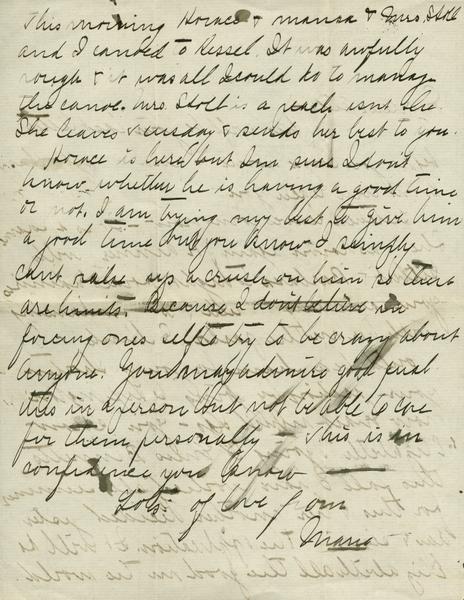 This morning Horace & mama & Mrs. Stoll
and I canoed to Kessel. It was awfully
rough & it was all I could do to manage
the canoe. Mrs Stoll is a peach isn't she.
She leaves Tuesday & sends her best to you.
Horace is here but I'm sure I don't
know whether he is having a good time
or not. I am trying my best to give him
a good time but you know I simply
cant rake up a crush on him so there
are limits. Because I don't believe in
forcing ones self to try to be crazy about
anyone. You may admire good qual
ities in a person but not be able to care
for them personally — this is in
confidence you know
Lots of love from
Marie